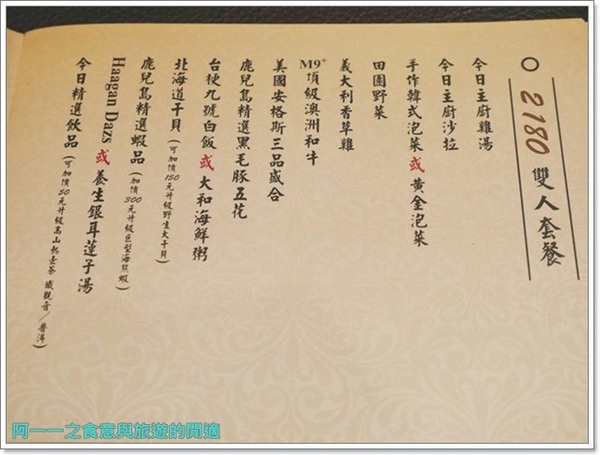 ○ 2180 雙人套餐
今日主廚雞湯
今日主廚沙拉
手作韓式泡菜或黃金泡菜
田園野菜
義大利香草雞
M9+頂級澳洲和牛
美國安格斯三品盛合
鹿兒島精選黑毛豚五花
台梗九號白飯或大和海鮮粥
北海道干貝(可加價150元升級野生大干貝)
鹿兒島精選蝦品(加價300元升級巨型海熊蝦)
Haagan Dazs 或 養生銀耳蓮子湯
今日精選飲品(可加價50元升級高山熱壺茶 鐵觀音/普洱)
阿一一之食意與旅遊的閒適